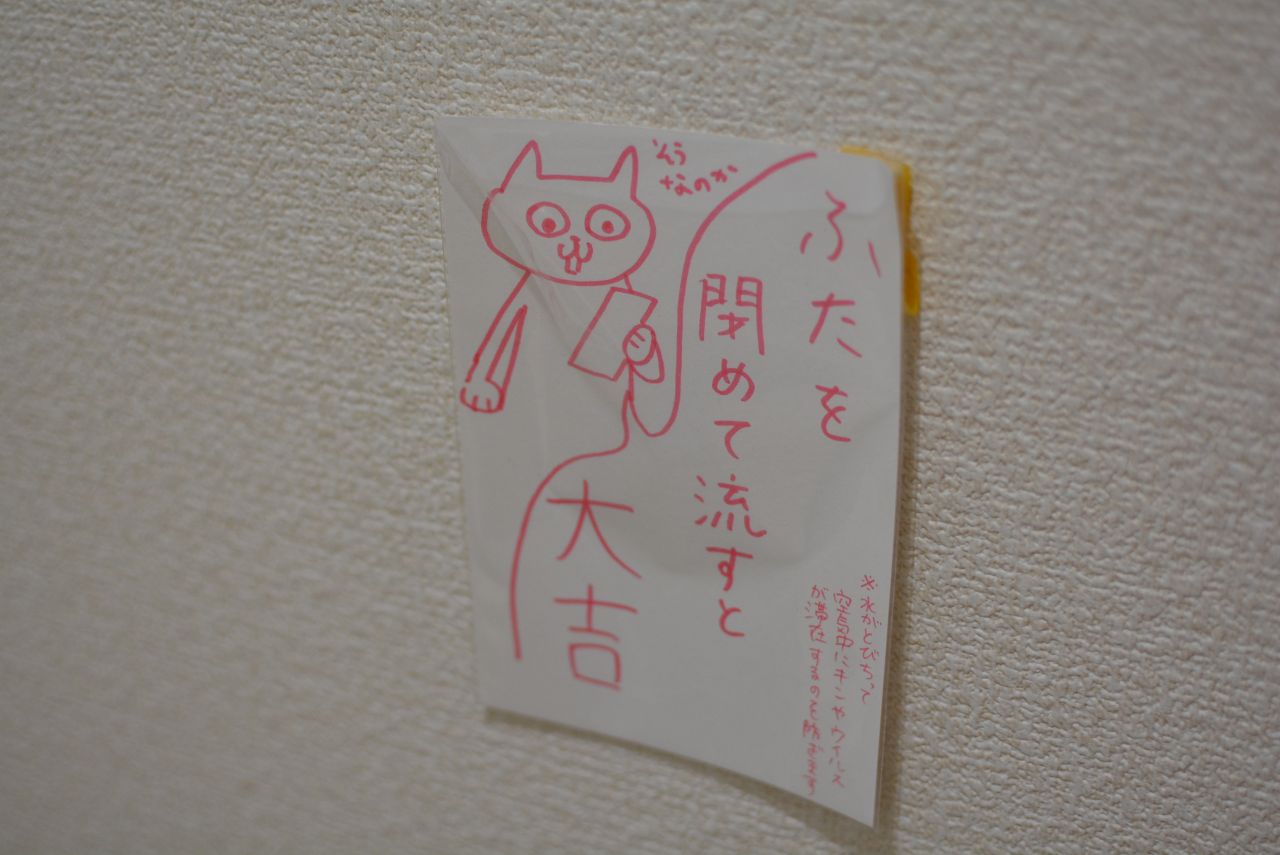 ふたを
閉めて流すと
大吉
そう
なのか
※水がとびちって
空気中にキンやウイルス
が滞在するのを防ぎます